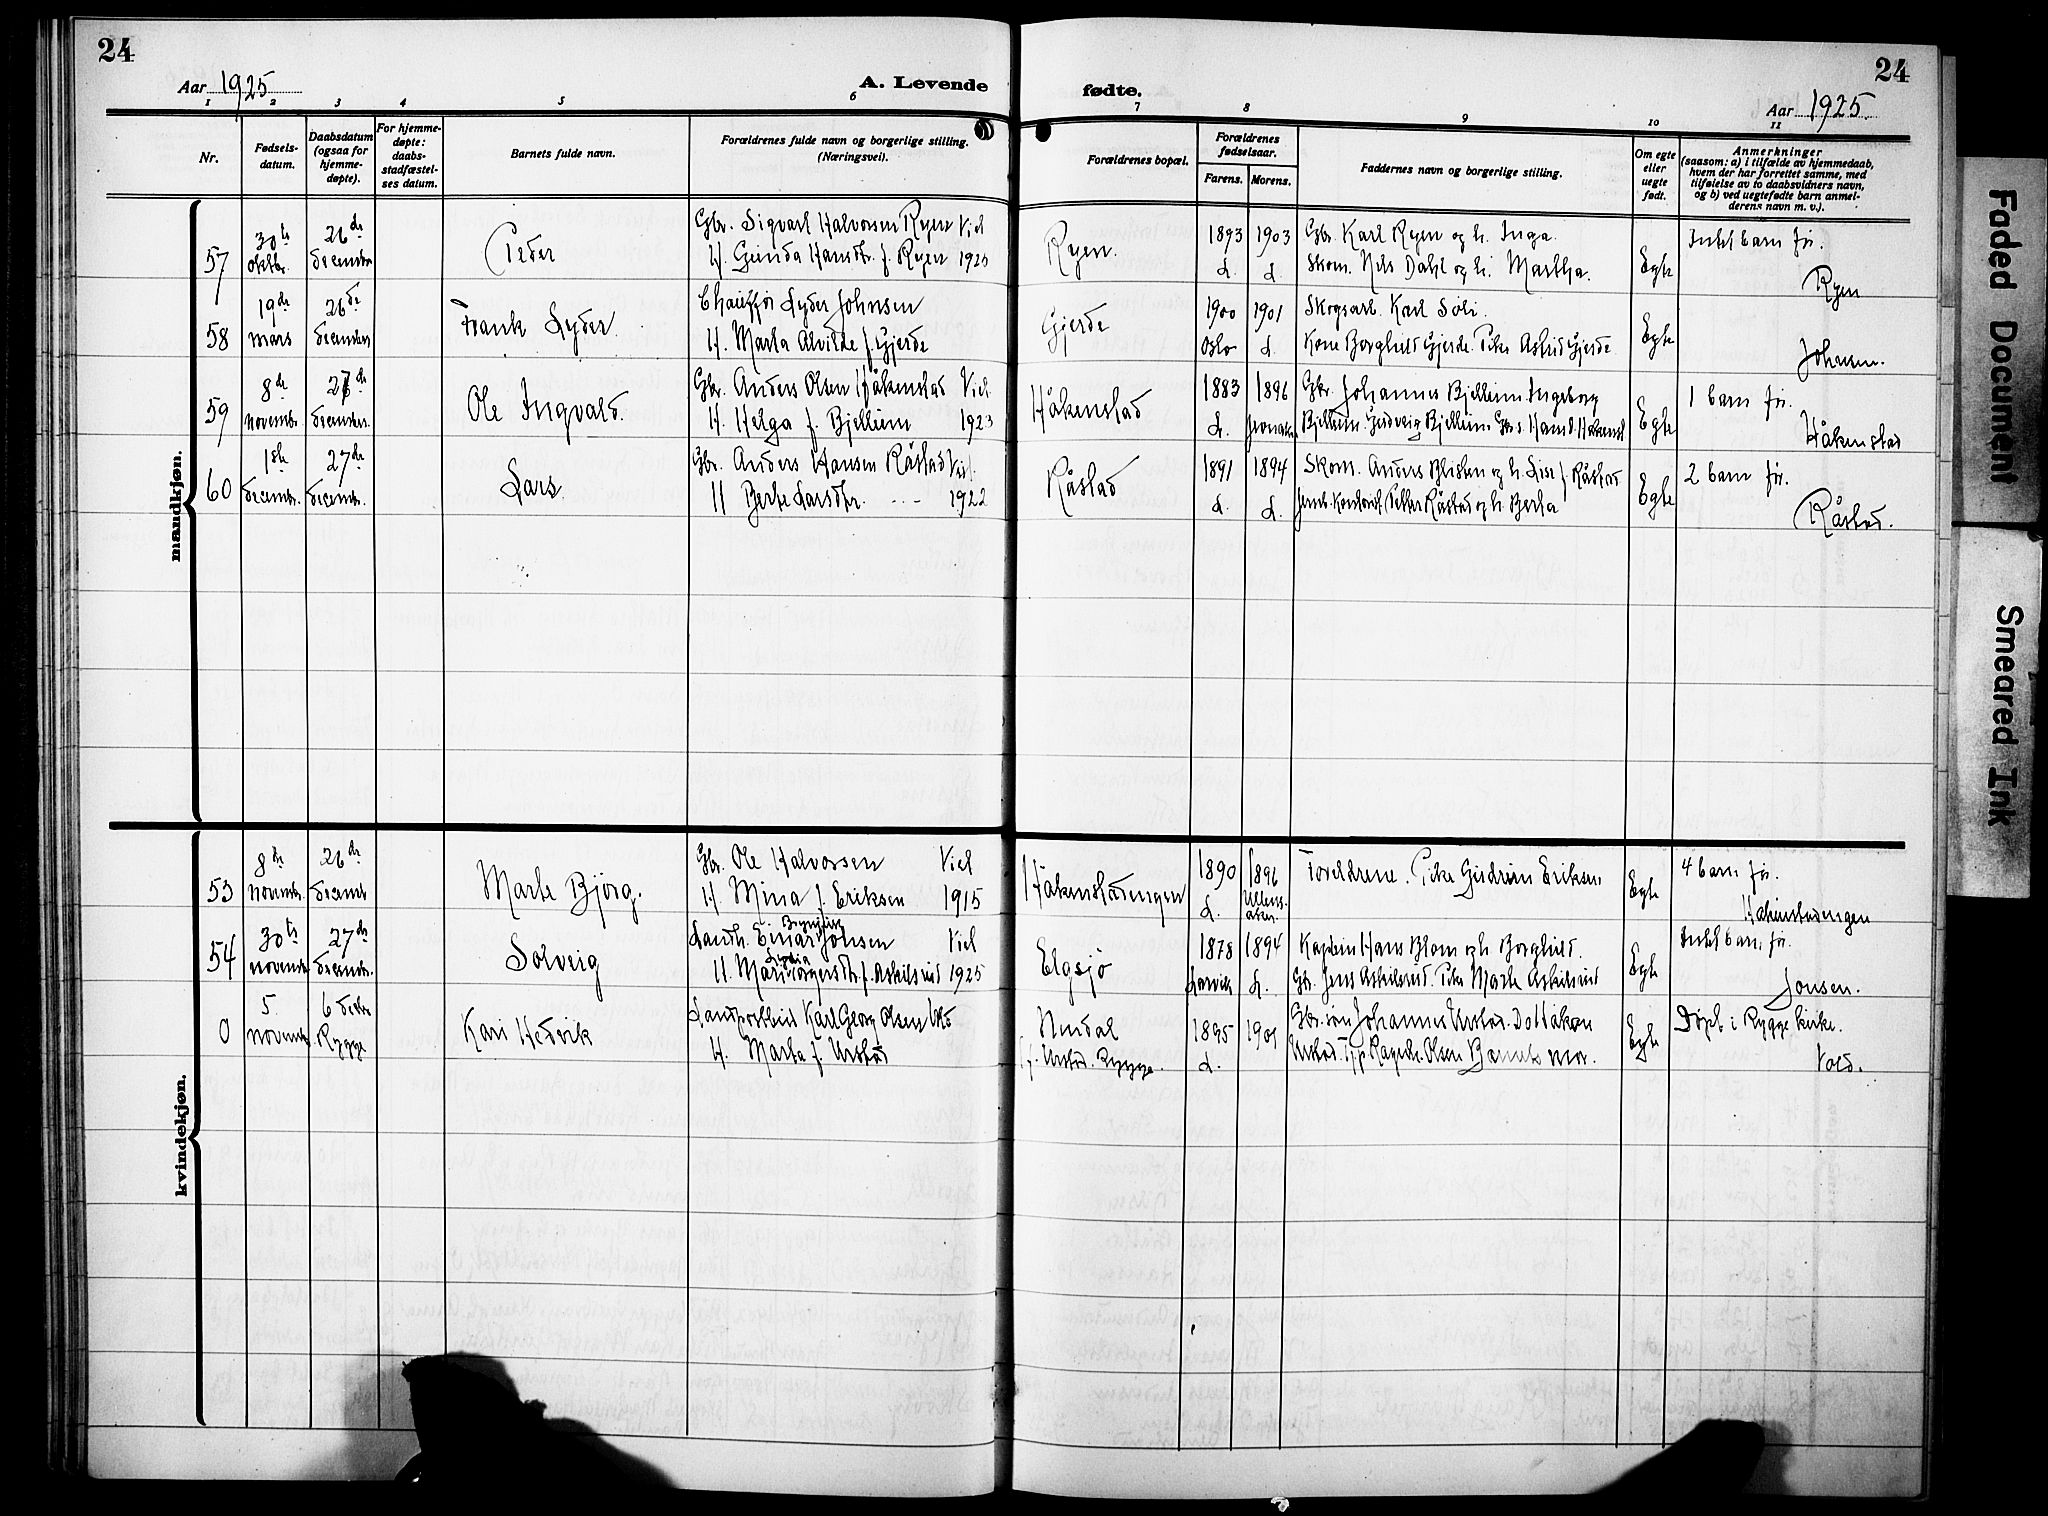 24
Aar 1925
A. Levende
fødte.
24
Aar 1925
1 2 3 4 5 6 7 8 9 10 11
Nr.
Fødsels-
datum.
Daabsdatum
(ogsaa for
hjemme-
døpte).
For hjemme-
døpte:
daabs-
stadfæstel-
ses datum.
Barnets fulde navn.
Forældrenes fulde navn og borgerlige stilling.
(Næringsvei).
Forældrenes bopæl.
Forældrenes
fødselsaar.
Farens. Morens.
Faddernes navn og borgerlige stilling.
Om egte
eller
uegte
født.
Anmerkninger
(saasom: a) i tilfælde av hjemmedaab,
hvem der har forrettet samme, med
tilføielse av to daabsvidners navn,
og b) ved uegtefødte barn anmel-
derens navn m. v.).
mandkjøn.
57
30te oktbr.
26de decembr
Peder
Gbr. Sigvart Halvorsen Ryen Viet
H. Gunda Hansdtr. f. Ryen 1925
Ryen.
1893 1903
d. d.
Gbr. Karl Ryen og h. Inga.
Skom. Nils Dahl og h. Martha.
Egte
Intet barn før.
Ryen
58
19de mars
26de decembr.
Frank Lyder.
Chauffør Lyder Johnsen
H. Marta Alvilde f. Gjerde
Gjerde
1900 1901
Oslo d.
Skogsarb. Karl Soli.
Kone Borghild Gjerde. Pike Astrid Gjerde.
Egte
Johnsen.
59
8de novembr.
27de decembr.
Ole Ingvald.
Gbr. Anders Olsen Håkenstad Viet
H. Helga f. Bjellum 1923
Håkenstad
1883 1896
d.
Gbr. Johannes Bjellum Ingeborg
Egte
1 barn før.
Håkenstad
60
1ste decembr.
27de decembr.
Lars
Gbr. Anders Hansen Råstad Viet.
H. Berte Larsdtr. - - - 1922
Råstad
1891 1894
d. d.
Skom. Anders Blisten og h. Lise f. Råstad
Petter Råstad og h. Berta
Egte
2 barn før.
Råstad.
kvindekjøn.
53
8de novembr.
26de decembr
Marte Bjørg.
Gbr. Ole Halvorsen Viet
H. Mina f. Eriksen 1915
Håkenstadengen
1890 1896
d. Ullens-
aker.
Foreldrene. Pike Gudrun Eriksen
Egte
4 barn før.
Håkenstadengen
54
30te novembr
27de decembr.
Solveig
Landh. Einar Johsen Viet
1925
Elgsjø
1878 1894
Larvik d.
Kaptein Hans Blom og h. Borghild.
Gbr. Jens Askilsrud. Pike Marte Askilsrud
Egte
Intet barn før.
Jonsen.
0
5. novembr
6 decbr. Rygge
Kari Hedvik
Landpostbud Karl Georg Olsen
H. Marta f. Urstad
Nordal
f. Urstad. Rygge.
1895 1901
d.
Gbr.søn Johannes Urstad. Do Håkon
Urstad. Olsen Barnets mor.
Egte
Døpt i Rygge kirke.
Vold.
Faded Document
Smeared Ink